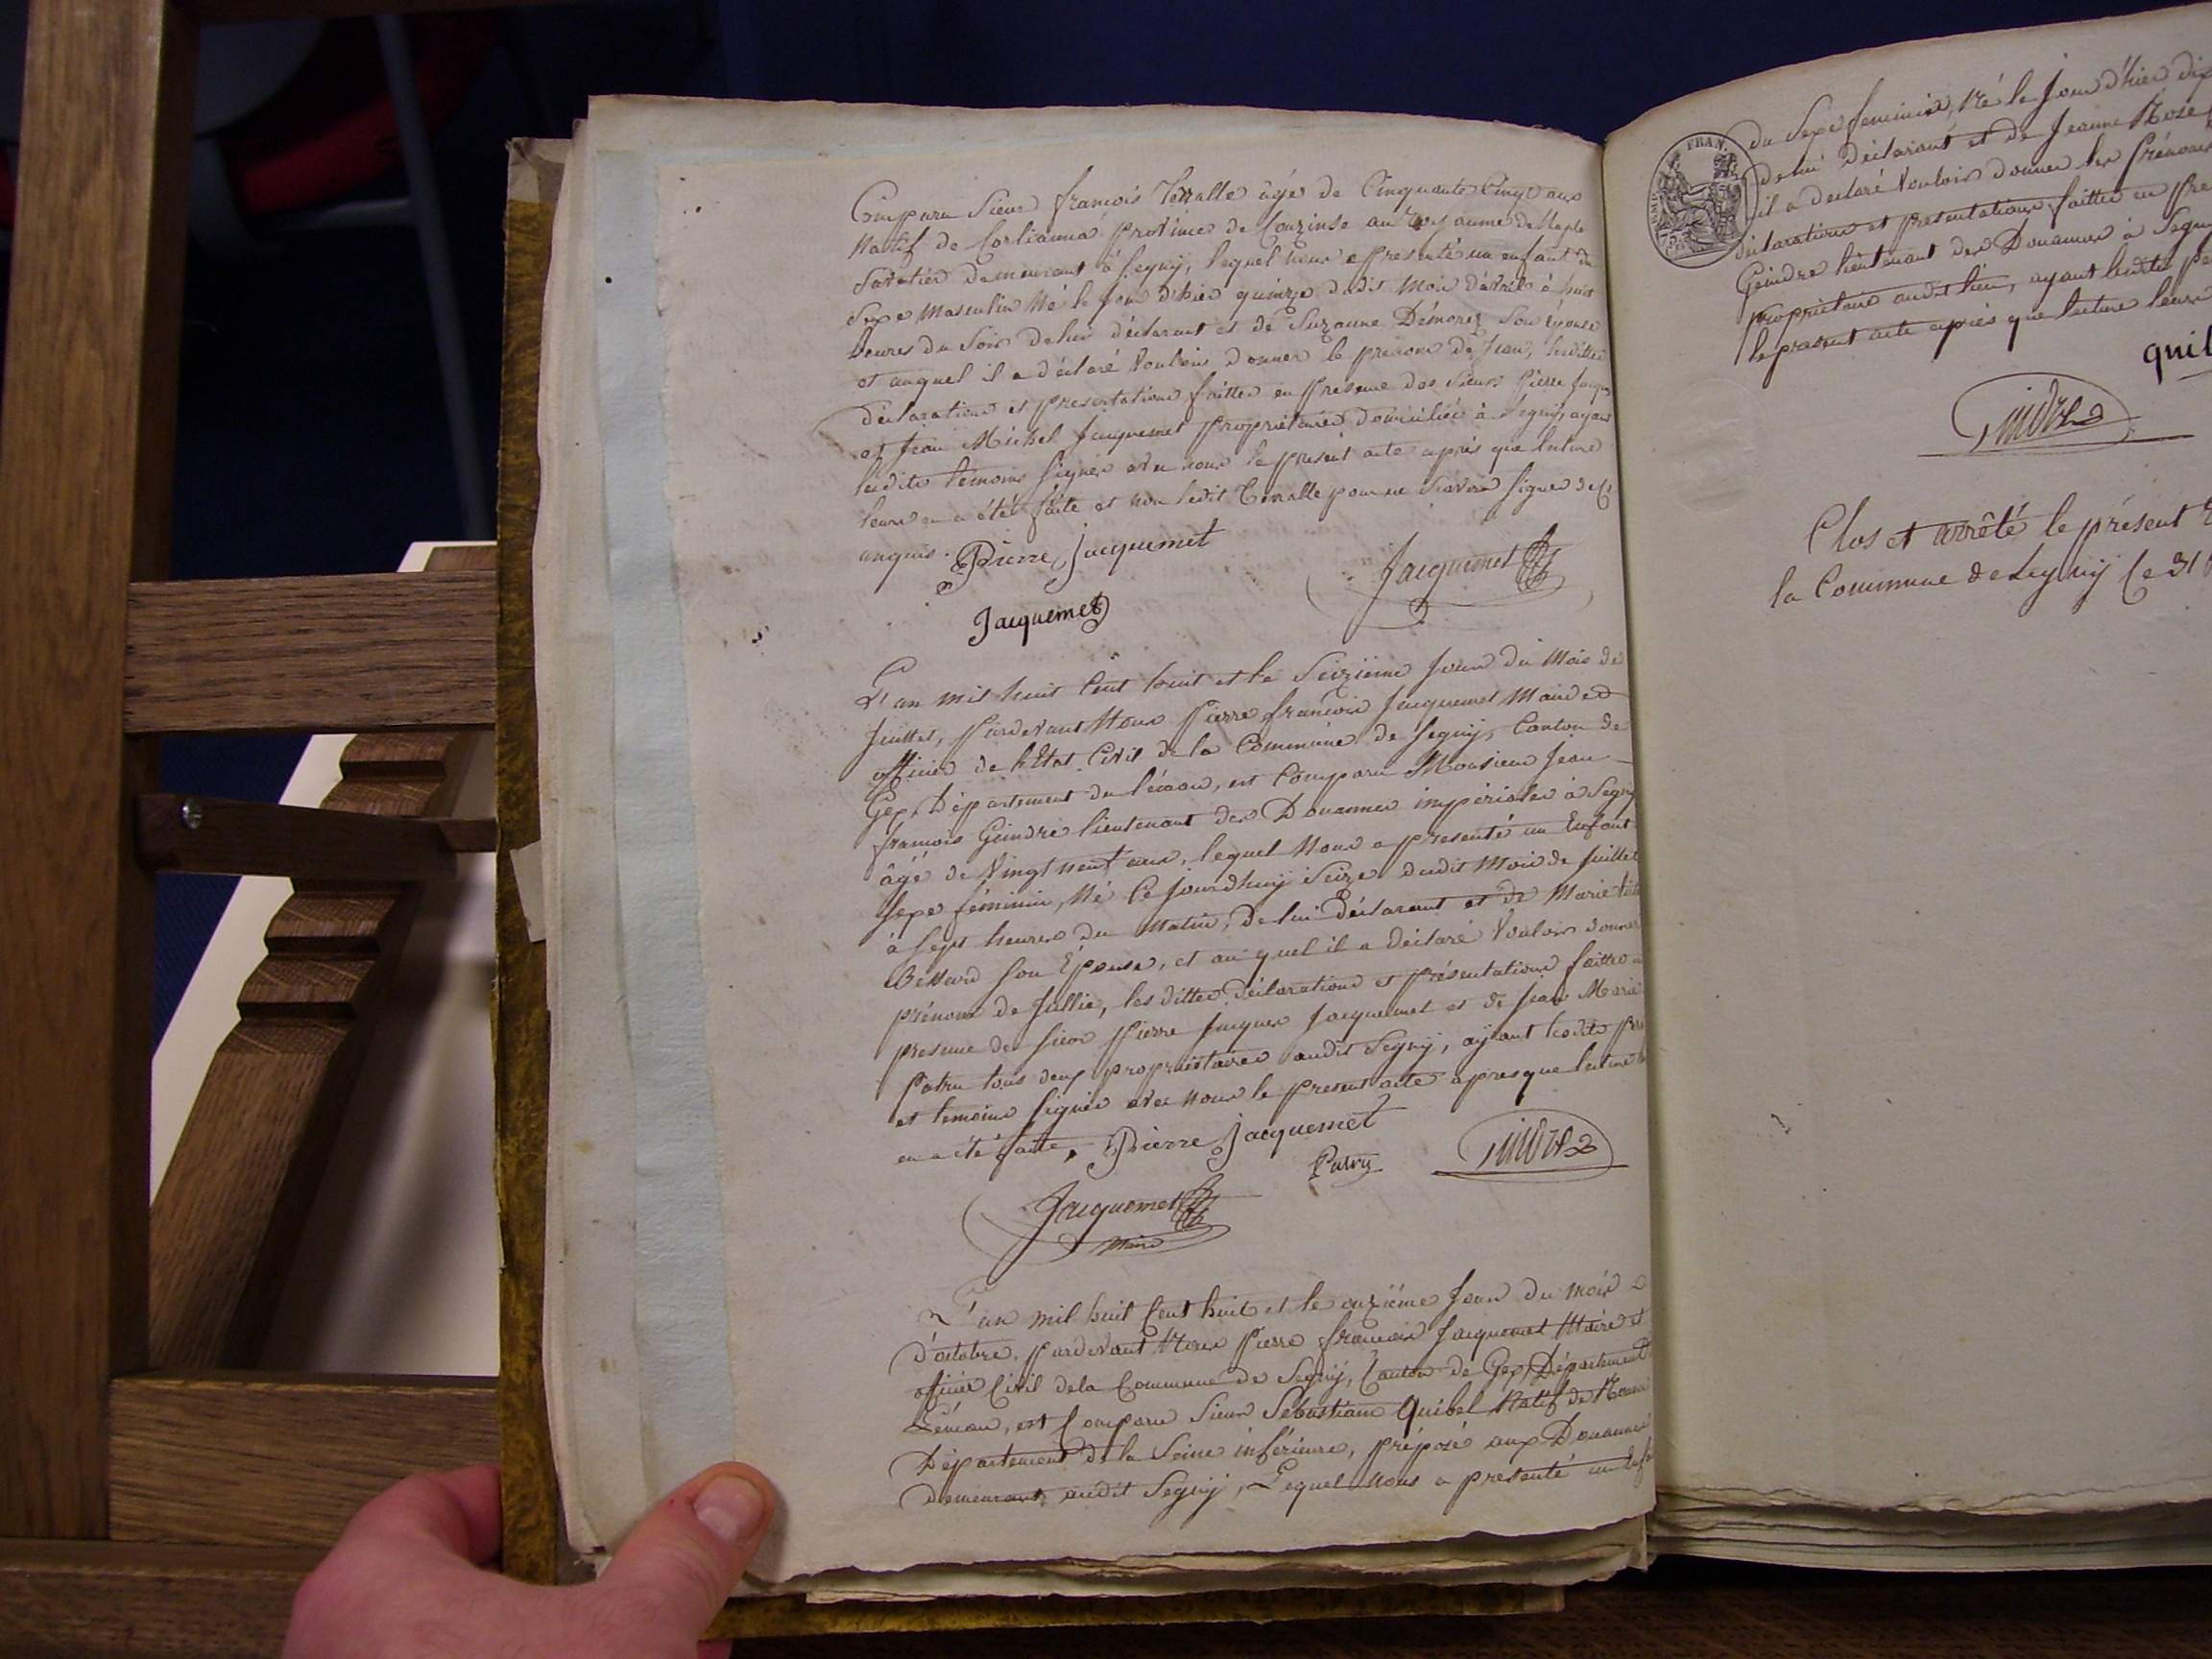 Comparu Sieur françois Terralle âgé de Cinquante Cinq ans
Natif de Corlianná province de Conzinse au Royaume de Naple
Savetier demeurant à Segnij, lequel nous a presenté un enfant du
Sexe Masculin Né le jour d'hier quinze dudit Mois d'avril à huit
heures du Soir de lui déclarant et de Suzanne Démorez Son épouse
et auquel il a déclaré Vouloir donner le prénom de Jean, lesdittes
déclaration et presentation faittes en presence des Sieurs Pierre Jacques
et Jean Michel Jacquemet propriétaires domiciliés à Segnij, ayant
lesdits témoins signés avec nous le présent acte après que lecture
leurs en a été faite et non ledit Terralle pour ne Scavoir signer de ce
enquis. Pierre Jacquemet
Jacquemet
Jacquemet
L'an mil huit Cent huit et le Seizieme Jour du Mois de
Juillet, Pardevant Nous Pierre françois Jacquemet Maire et
officier de l'Etat Civil de la Commune de Segnij, Canton de
Gex, Département du Léman, est Comparu Monsieur Jean
françois Geindre lieutenant des Douannes impériales à Segnij
âgé de Vingt neuf ans, lequel Nous a presenté un Enfant
Sexe féminin, Né Ce jourdhuij Seize dudit Mois de Juillet
à Sept heures du Matin, de lui Déclarant et de Marie
Son Épouse, et au quel il a déclaré Vouloir donner
prénom de Jullie, les dittes déclaration et présentation faittes en
présence de Sieur Pierre Jacques Jacquemet et de Jean Marie
Patru tous deux propriétaires audit Segnij, ayant lesdits
et temoins signés avec nous le present acte apres que lecture
en a été faitte. Pierre Jacquemet
Patru
Jacquemet
Maire
L'an mil huit Cent huit et le onzième Jour du mois
d'octobre, Pardevant Nous Pierre françois Jacquemet Maire et
officier Civil de la Commune de Segnij, Canton de Gex, Département
Léman, est Comparu Sieur Sébastians Quibel Natif de Rouen
Département de la Seine inférieure, préposé aux Douannes
demeurant audit Segnij, Lequel Nous a presenté un
FRAN.
du Sexe feminin, Né le Jour d'hier dix
de lui déclarant et de Jeanne Rose
il a declaré Vouloir donner les Prénoms
déclaration et presentation faittes en
Geindre lieutenant des Douannes à Segnij
propriétaire audit lieu, ayant lesdits
le présent acte après que lecture leurs
Clos et arrêté le présent
la Commune de Segnij le 31